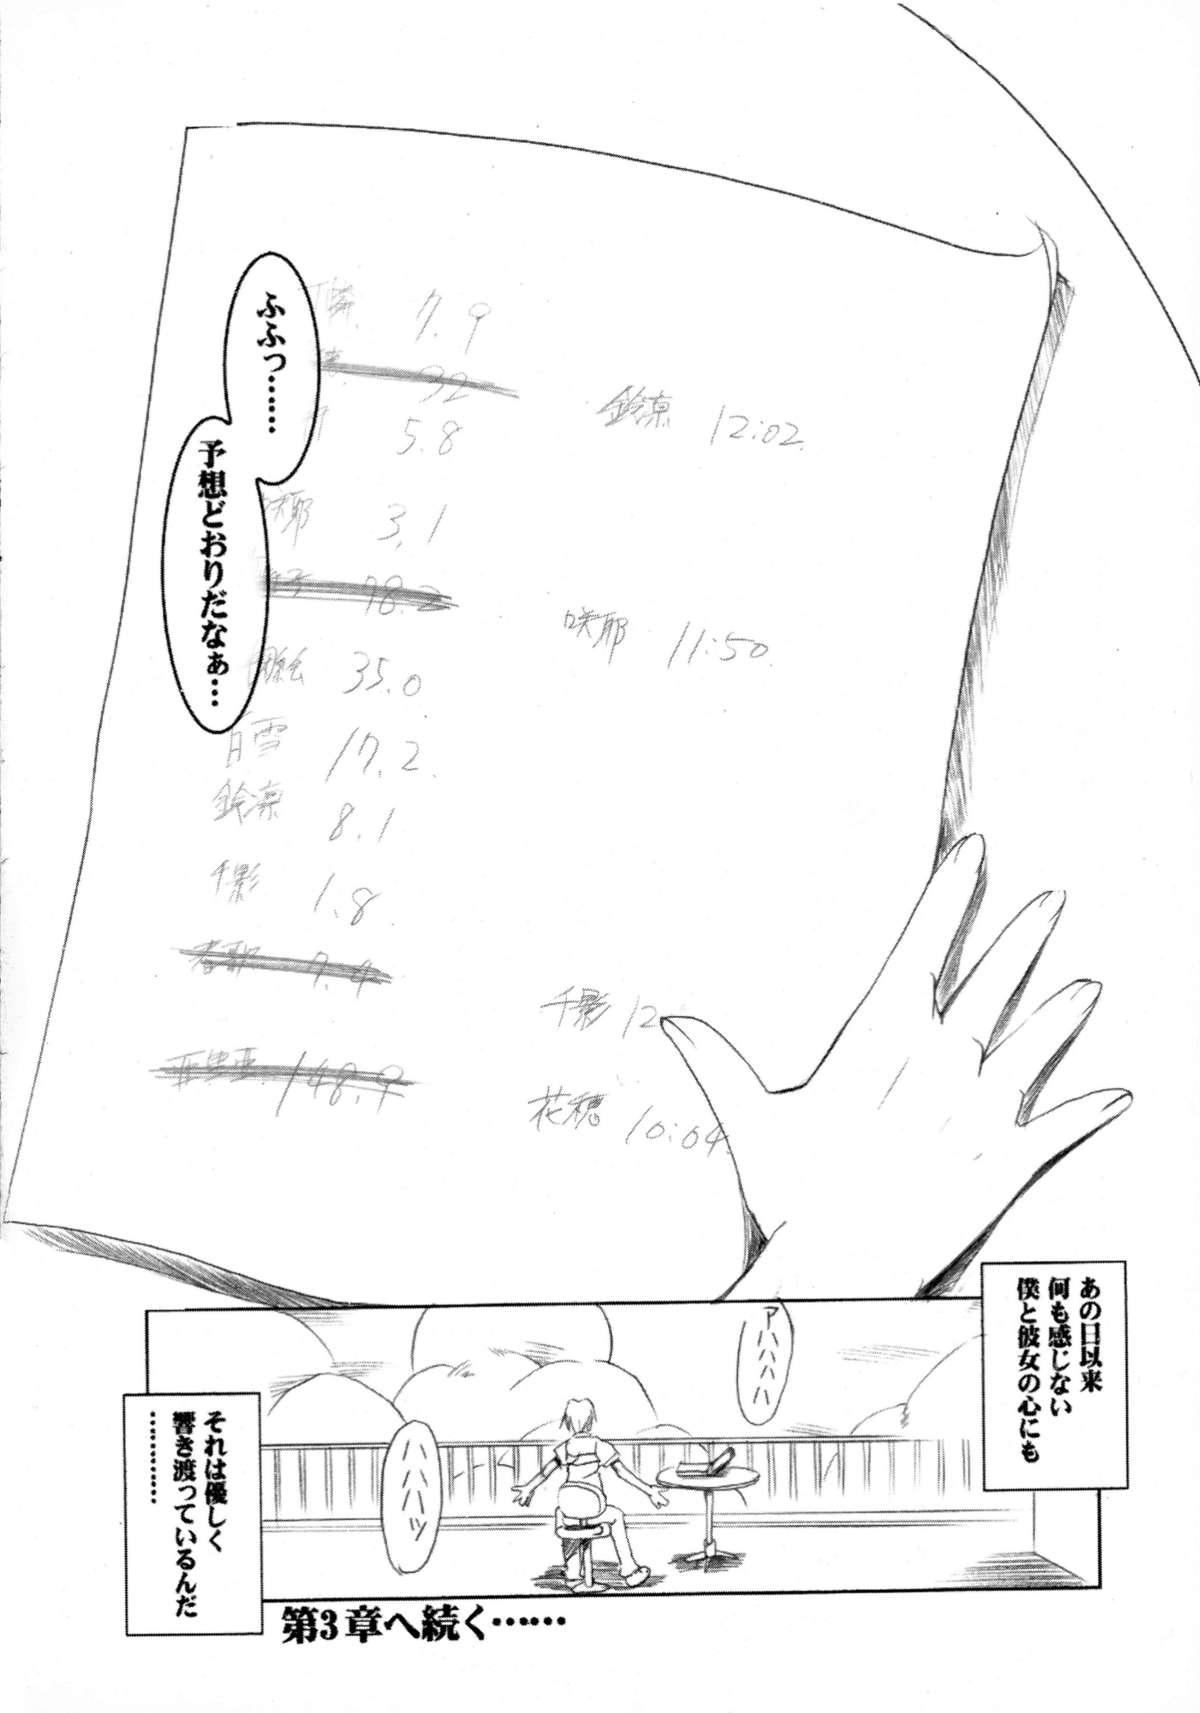 ふふっ……
予想どおりだなぁ…
7.9
32
鈴凛 12:02.
5.8
咲耶 3.1
18.2
咲耶 11:50.
35.0
白雪 17.2.
鈴凛 8.1
千影 1.8.
春歌 7.4
千影 12
亜里亜 148.9
花穂 10:04.
あの日以来
何も感じない
僕と彼女の心にも
アハハハハ
ハハハハッ
それは優しく
響き渡っているんだ
…………
第3章へ続く……